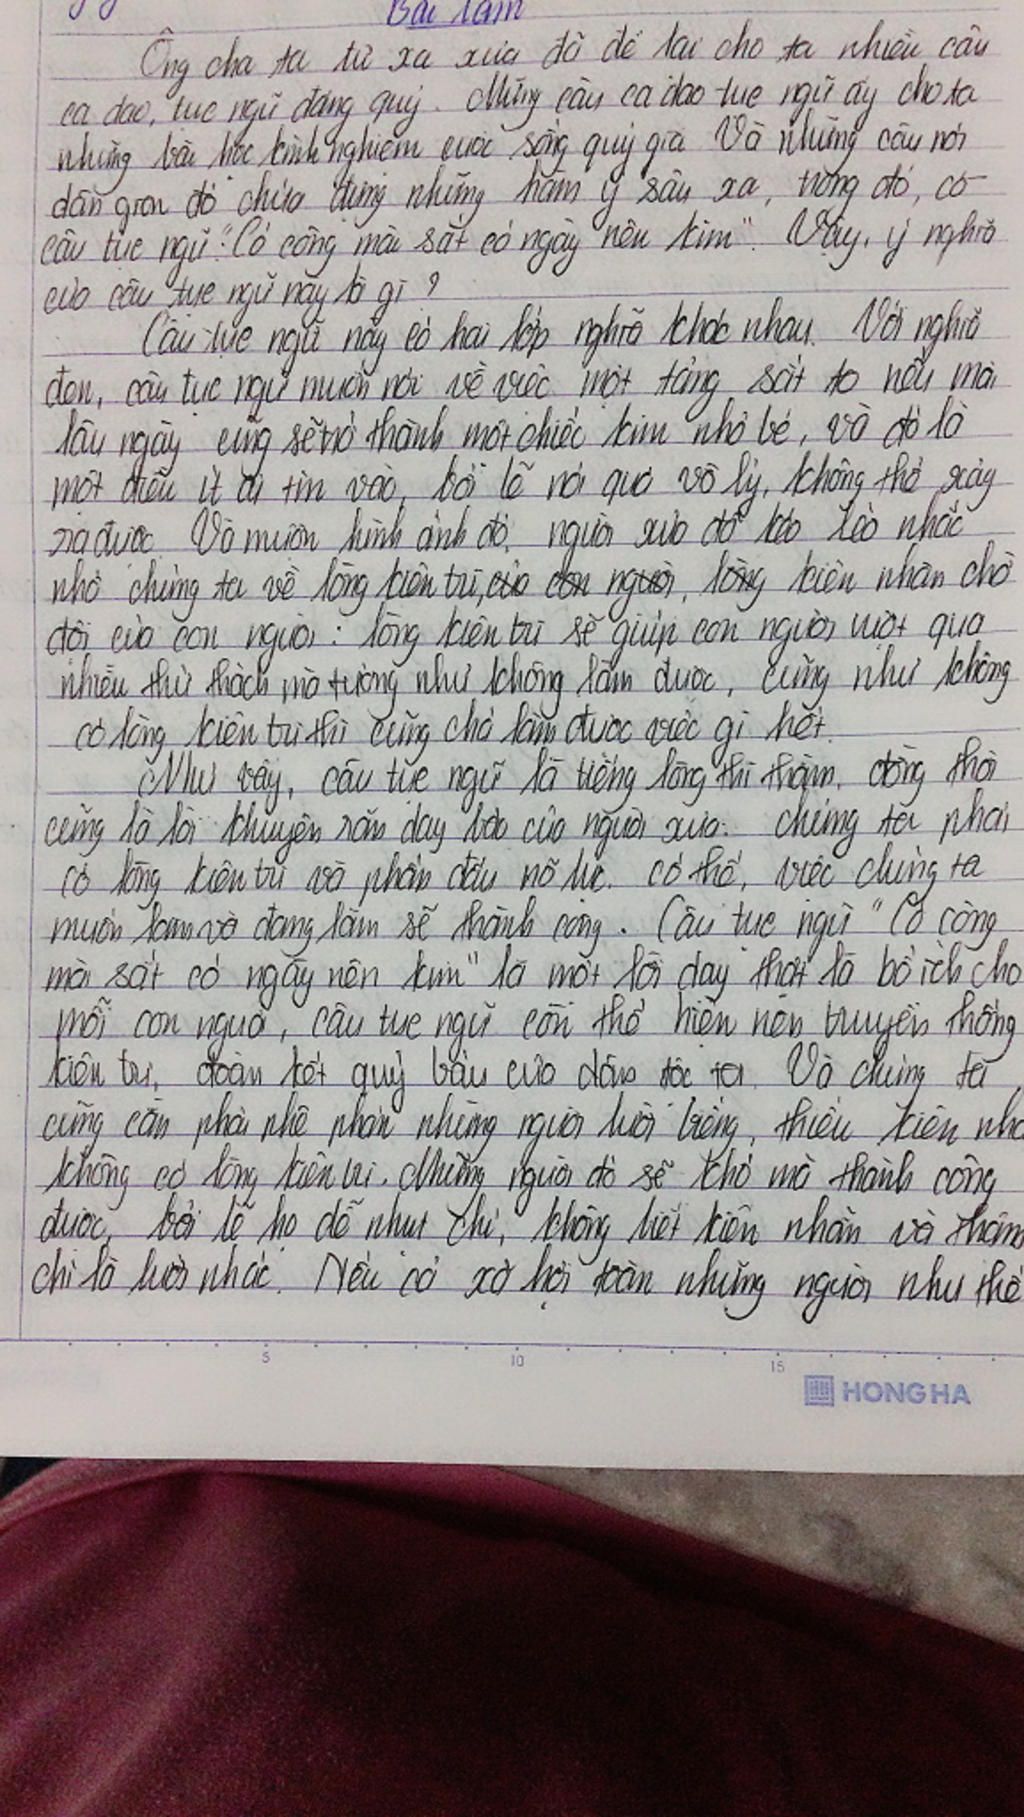 Bài làm
Ông cha ta từ xa xưa đã để lại cho ta nhiều câu
ca dao, tục ngữ đáng quý. Những câu ca dao tục ngữ ấy cho ta
những bài học kinh nghiệm cuộc sống quý giá. Và những câu nói
dân gian đó chứa đựng những hàm ý sâu xa, trong đó, có
câu tục ngữ "Có công mài sắt có ngày nên kim". Vậy, ý nghĩa
của câu tục ngữ này là gì ?
Câu tục ngữ này có hai lớp nghĩa khác nhau. Với nghĩa
đen, câu tục ngữ muốn nói về việc một tảng sắt to nếu mài
lâu ngày cũng sẽ trở thành một chiếc kim nhỏ bé, và đó là
một điều ít ai tin vào, bởi lẽ nó quá vô lý, không thể xảy
ra được. Và mượn hình ảnh đó, người xưa đã kéo léo nhắc
nhở chúng ta về lòng kiên trì, của con người, lòng kiên nhẫn chờ
đợi của con người: lòng kiên trì sẽ giúp con người vượt qua
nhiều thử thách mà tưởng như không làm được, cũng như không
có lòng kiên trì thì cũng chả làm được việc gì hết.
Như vậy, câu tục ngữ là tiếng lòng thì thầm, đồng thời
cũng là lời khuyên răn dạy bảo của người xưa: chúng ta phải
có lòng kiên trì và phấn đấu nỗ lực. có thế, việc chúng ta
muốn làm và đang làm sẽ thành công. Câu tục ngữ "Có công
mài sắt có ngày nên kim" là một lời dạy thật là bổ ích cho
mỗi con người, câu tục ngữ còn thể hiện nên truyền thống
kiên trì, đoàn kết quý báu của dân tộc ta. Và chúng ta
cũng cần phải phê phán những người lười biếng, thiếu kiên nhẫ
không có lòng kiên trì. Những người đó sẽ khó mà thành công
được, bởi lẽ họ dễ như chi, không biết kiên nhẫn và thậm
chí là lười nhác. Nếu có xã hội toàn những người như thế
5 10 15
HONG HA